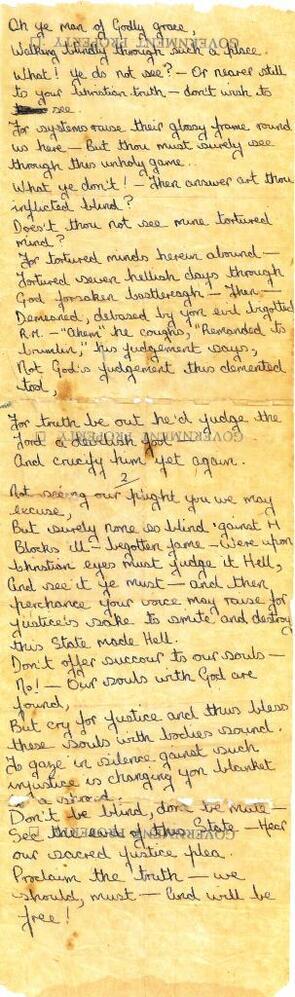 Oh ye man of Godly grace,
GOVERNMENT PROPERTY
Walking blindly through such a place.
What! Ye do not see? — Or nearer still
to your Christian truth — don't wish to
see.
For systems raise their glossy frame round
us here — But thou must surely see
through this unholy game.
What ye don't! — Then answer art thou
inflicted blind?
Does't thou not see mine tortured
mind?
For tortured minds herein abound —
Tortured seven hellish days through
God forsaken Castlereagh — Then —
Demeaned, debased by yon evil bigotted
R.M. — "Ahem" he coughs, "Remanded to
Crumlin," his judgement says,
Not God's judgement this demented
tool,
For truth be out he'd judge the
Lord a devilish
GOVERNMENT PROPERTY
And crucify him yet again.
2
Not seeing our plight you we may
excuse,
But surely none so blind 'gainst H
Blocks ill — begotten fame — Were upon
Christian eyes must judge it Hell,
And see it ye must — and then
perchance your voice may raise for
justice's sake to smite and destroy
this State made Hell.
Don't offer succour to our souls —
No! — Our souls with God are
found,
But cry for justice and thus bless
these souls with bodies sound.
To gaze in silence gainst such
injustice is changing yon blanket
a
Don't be blind, don't be mute —
See the end of this State — Hear
GOVERNMENT PROPERTY
our sacred justice plea.
Proclaim the truth — we
should, must — And will be
free!